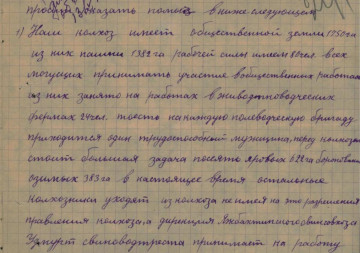 просим оказать помощь в нижеследующем
1) Наш колхоз имеет общественной земли 1750 га
из них пашни 1382 га рабочей силы имеем 80 чел. всех
могущих принимать участие в общественных работах
из них занято на работах в животноводческих
фермах 24 чел. то есть на каждую полеводческую бригаду
приходится один трудоспособный мужчина, перед колхозом
стоит большая задача посеять яровых 622 га
озимых 383 га в настоящее время остальные
колхозники уходят из колхоза не имея на это разрешения
правления колхоза, а дирекция свиносовхоза
Удмурт свиноводтреста принимает на работу